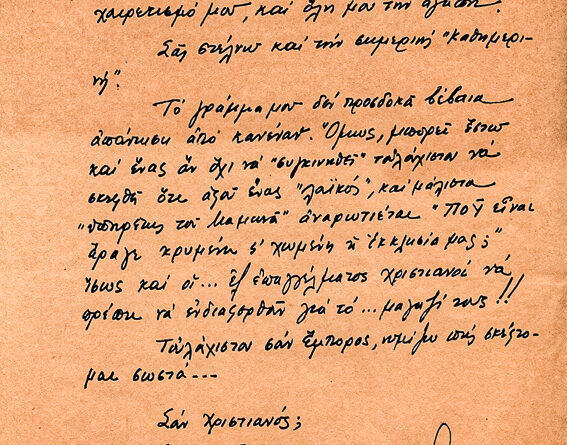 χαιρετισμό μου, και όλη μου την αγάπη.
Σᾶς στέλνω και τήν σημερινή "καθημερι-
νή".
Τό γράμμα μου δέν προσδοκᾶ βέβαια
ἀπάντηση ἀπό κανέναν. Ὅμως, μπορεῖ ἔστω
και ἕνας ἄν ὄχι νά "συγκινηθεῖ" τοὐλάχιστον νά
σκεφθῆ ὅτι ἀφοῦ ἕνας "λαϊκός", και μάλιστα
"ὑπηρέτης τοῦ Μαμωνᾶ" ἀναρωτιέται "Ποῦ εἶναι
ἄραγε κρυμένη ἤ χωμένη ἡ Ἐκκλησία μας;"
Ἴσως και οἱ... ἐξ ἐπαγγέλματος χριστιανοί νά
πρέπει νά ἐνδιαφερθοῦν γιά τό... μαγαζί τους!!
Τοὐλάχιστον σάν Ἔμπορος, νομίζω πώς σκέπτο-
μαι σωστά---
Σάν χριστιανός;